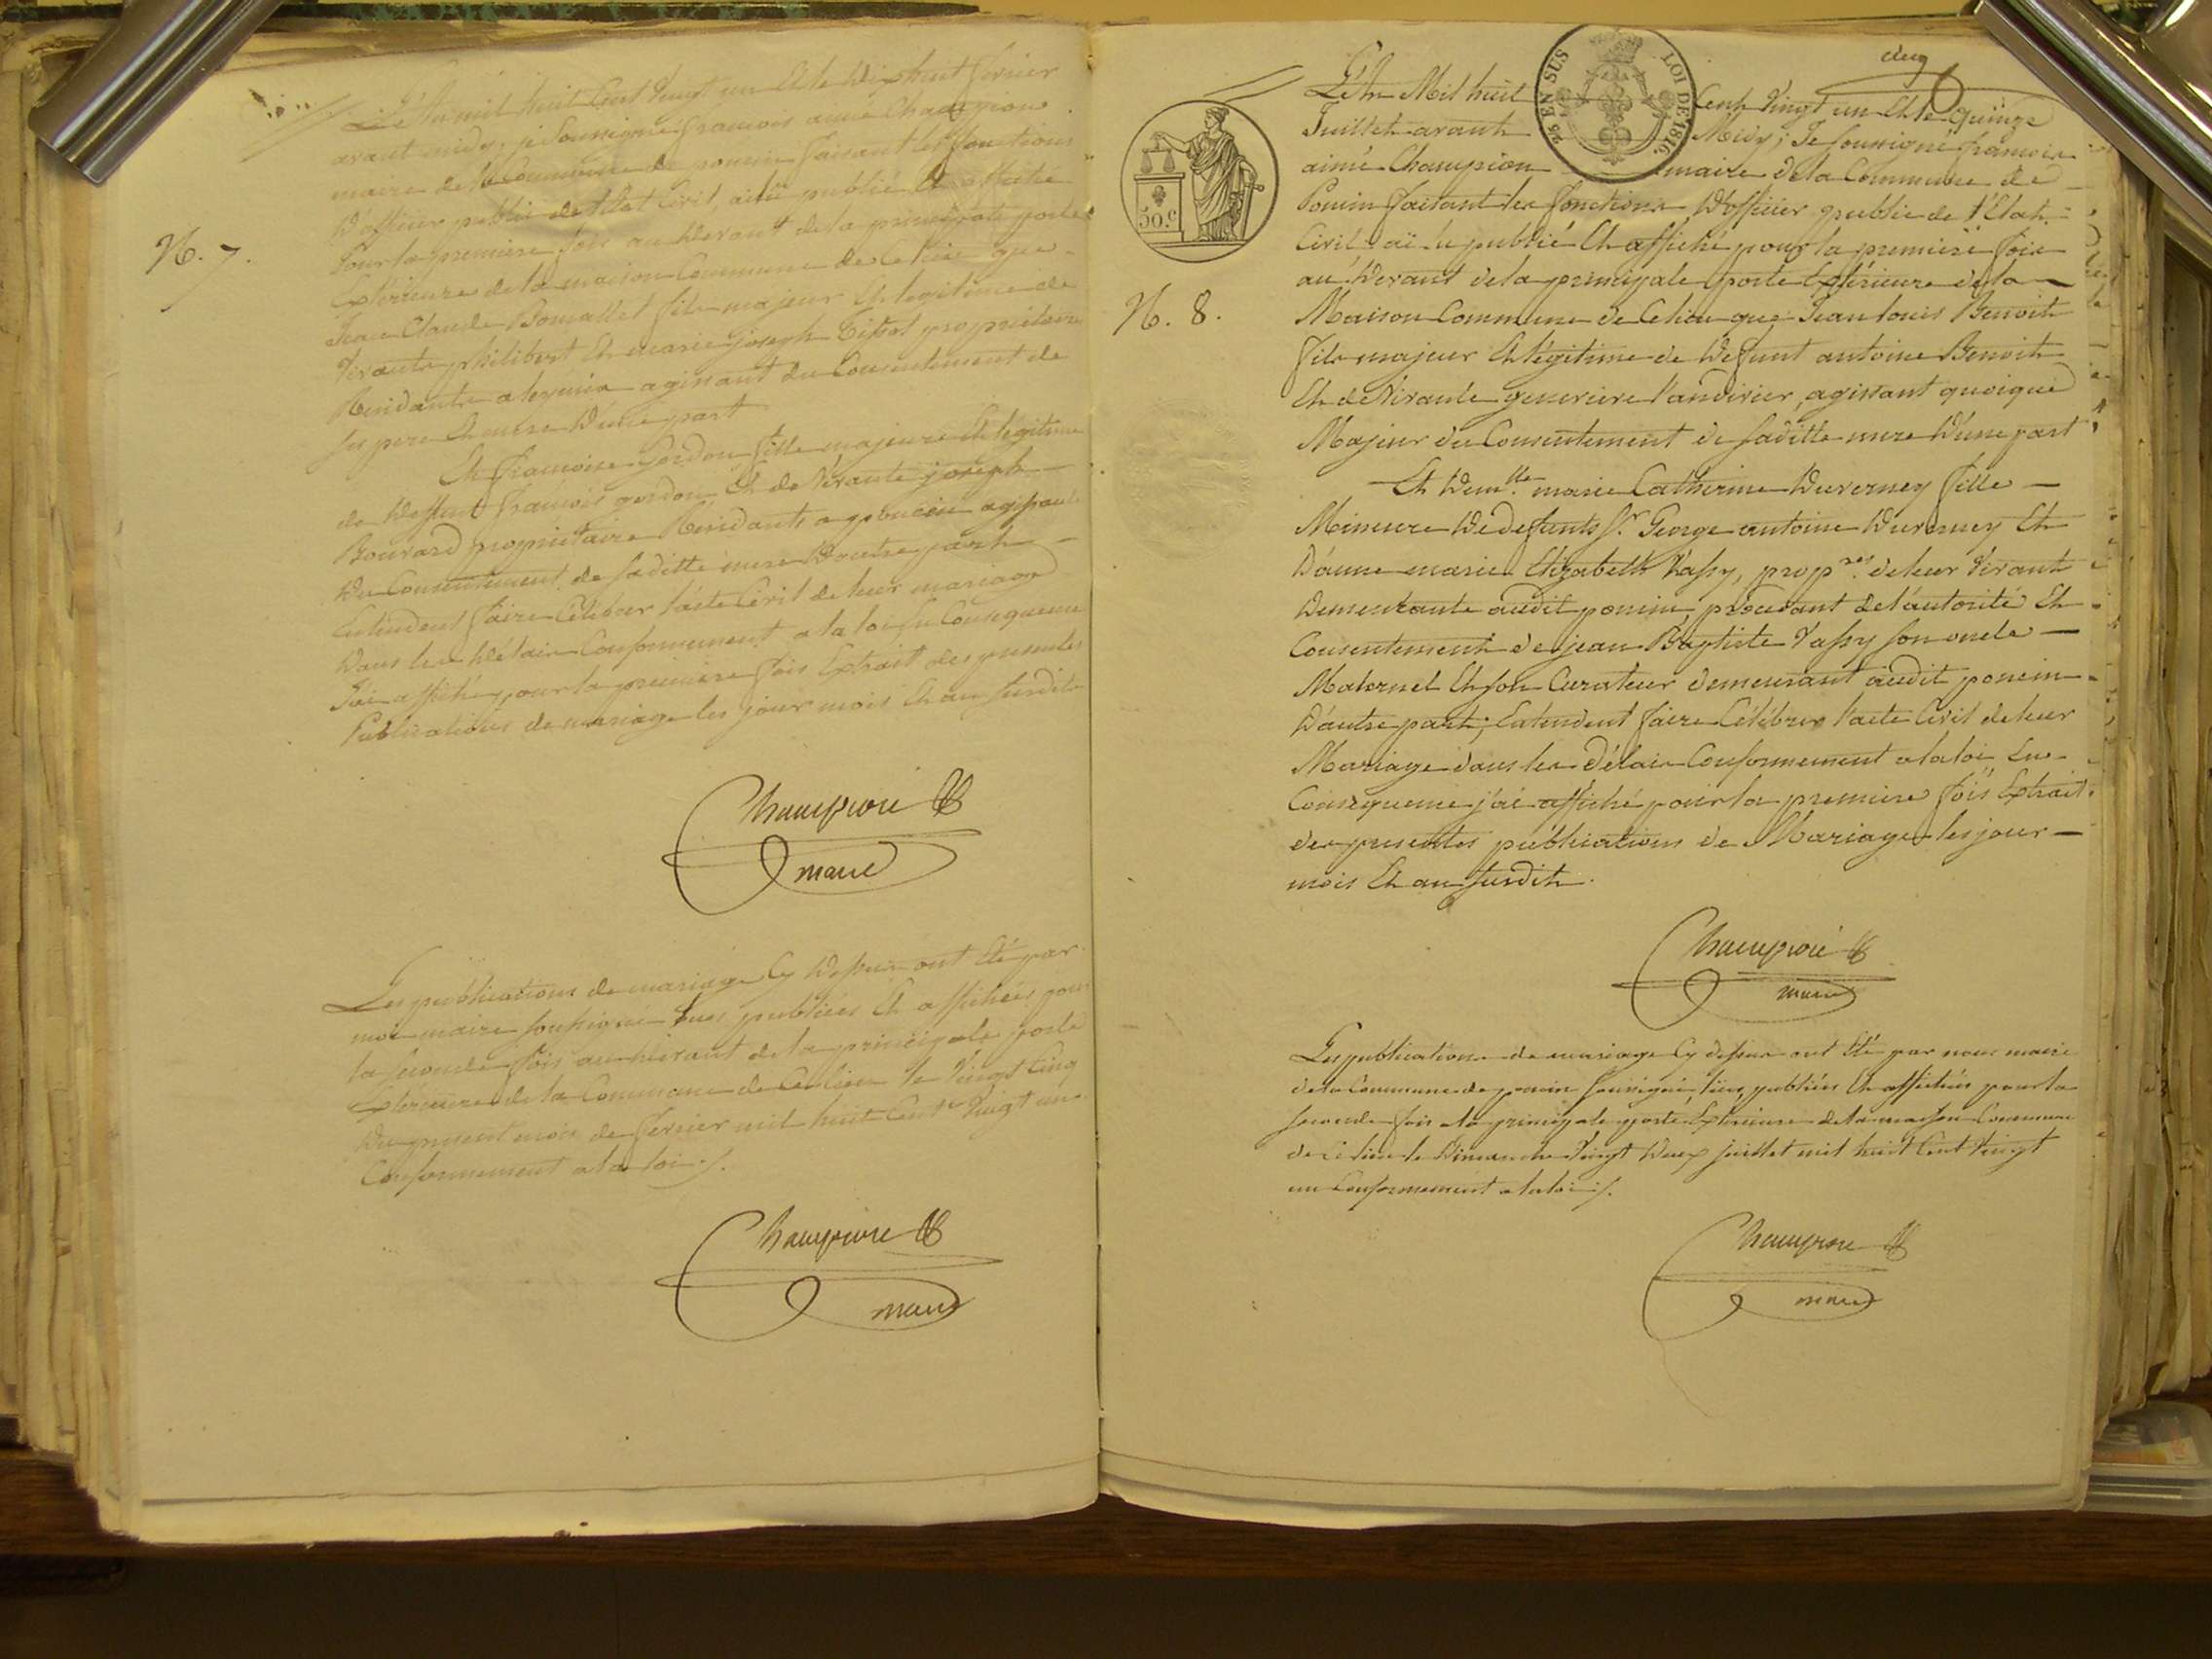 L'An mil huit Cent vingt un Et le dix huit fevrier
avant midy, je Soussigné françois aimé Champion
maire de la Commune de poncin faisant les fonctions
d'officier public de l'état Civil, ai lu publié Et affiché
Pour la premiere fois au devant de la principale porte
Extérieure de la maison Commune de Ce lieu que
N. 7.
Jean Claude Bomallet fils majeur Et legitime de
vivants philibert Et marie joseph propriétaires
Residants a agissant du Consentement de
ses pere Et mere d'une part
Et françoise gordon fille majeure Et legitime
de deffunt françois gordon Et de vivante joseph
Bouvard propriétaire Residante a poncin agissant
du Consentement de sa ditte mere d'autre part
Entendent faire Célébrer l'acte Civil de leur mariage
dans les délais Conformement a la loi En Consequence
J'ai affiché pour la premiere fois Extrait des presentes
Publications de mariage les jour mois Et an susdits
Champion
maire
Les publications de mariage Cy dessus ont été par
moi maire soussigné lues publiées Et affichées pour
la seconde fois au devant de la principale porte
Extérieure de la Commune de Ce lieu le vingt Cinq
du present mois de fevrier mil huit Cent vingt un
Conformement a la loi ./.
Champion
maire
25 EN SUS
LOI DE 1816.
50.C
L'An Mil huit Cent Vingt un Et le Quinze
Juillet avant Midy; Je soussigné françois
aimé Champion maire de la Commune de
Poncin faisant les fonctions d'officier public de l'État
Civil ai lu publié Et affiché pour la premiere fois
au devant de la principale porte Extérieure de la
N. 8.
Maison Commune de Ce lieu que Jean Louis Benoit
fils majeur Et légitime de defunt antoine Benoit
Et de Vivante genevieve Vandirier, agissant quoique
Majeur du Consentement de sa ditte mere d'une part
Et dem.lle marie Catherine Duverney fille
Mineure de defunts Sr. George antoine Duverney Et
d'anne marie Elizabeth Vassy, prop.res de leur vivant
demeurante audit poncin, procédant de l'autorité Et
Consentement de jean Baptiste Vassy son oncle
Maternel Et son Curateur demeurant audit poncin
d'autre part; Entendent faire Célébrer l'acte Civil de leur
Mariage dans les délais Conformement a la loi En
Consequence j'ai affiché pour la premiere fois Extrait
des presentes publications de Mariage les jour
mois Et an susdits.
Champion
maire
Les publications de mariage Cy dessus ont été par nous maire
de la Commune de poncin soussigné, lües, publiées Et affichées pour la
seconde fois a la principale porte Extérieure de la maison Commune
de Ce lieu le Dimanche Vingt Deux juillet mil huit Cent Vingt
un Conformement a la loi ./.
Champion
maire